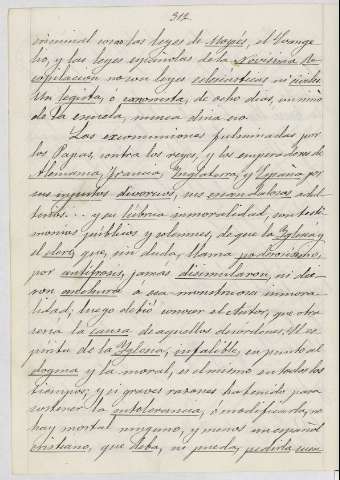 312.
criminal como las leyes de Moysés, el Evange-
lio, y las leyes españolas de la Novísima Re-
copilación no son leyes eclesiásticas ni civiles.
Un legista, ó canonista, de ocho dias, un niño
de la escuela, nunca diría eso.
Las excomuniones fulminadas por
los Papas, contra los reyes, y los emperadores de
Alemania, Francia, Inglaterra, y España, por
sus injustos divorcios, sus escandalosos adul-
terios... y su lúbrica inmoralidad, son testi-
monios públicos y solemnes, de que la Yglesia y
el clero, que, sin duda, llama poderosísimo,
por antífrasis, jamas disimularon, ni die-
ron anchura á esa monstruosa inmora-
lidad; luego debió conocer el Autor, que otra
sería la causa de aquellos desordenes. El es-
píritu de la Yglesia, infalible, en punto al
dogma y la moral, es el mismo en todos los
tiempos; y si graves razones ha tenido para
sostener la intolerancia, ó modificarla, no
hay mortal ninguno, y menos un español
cristiano, que deba, ni pueda, pedirla cuen-